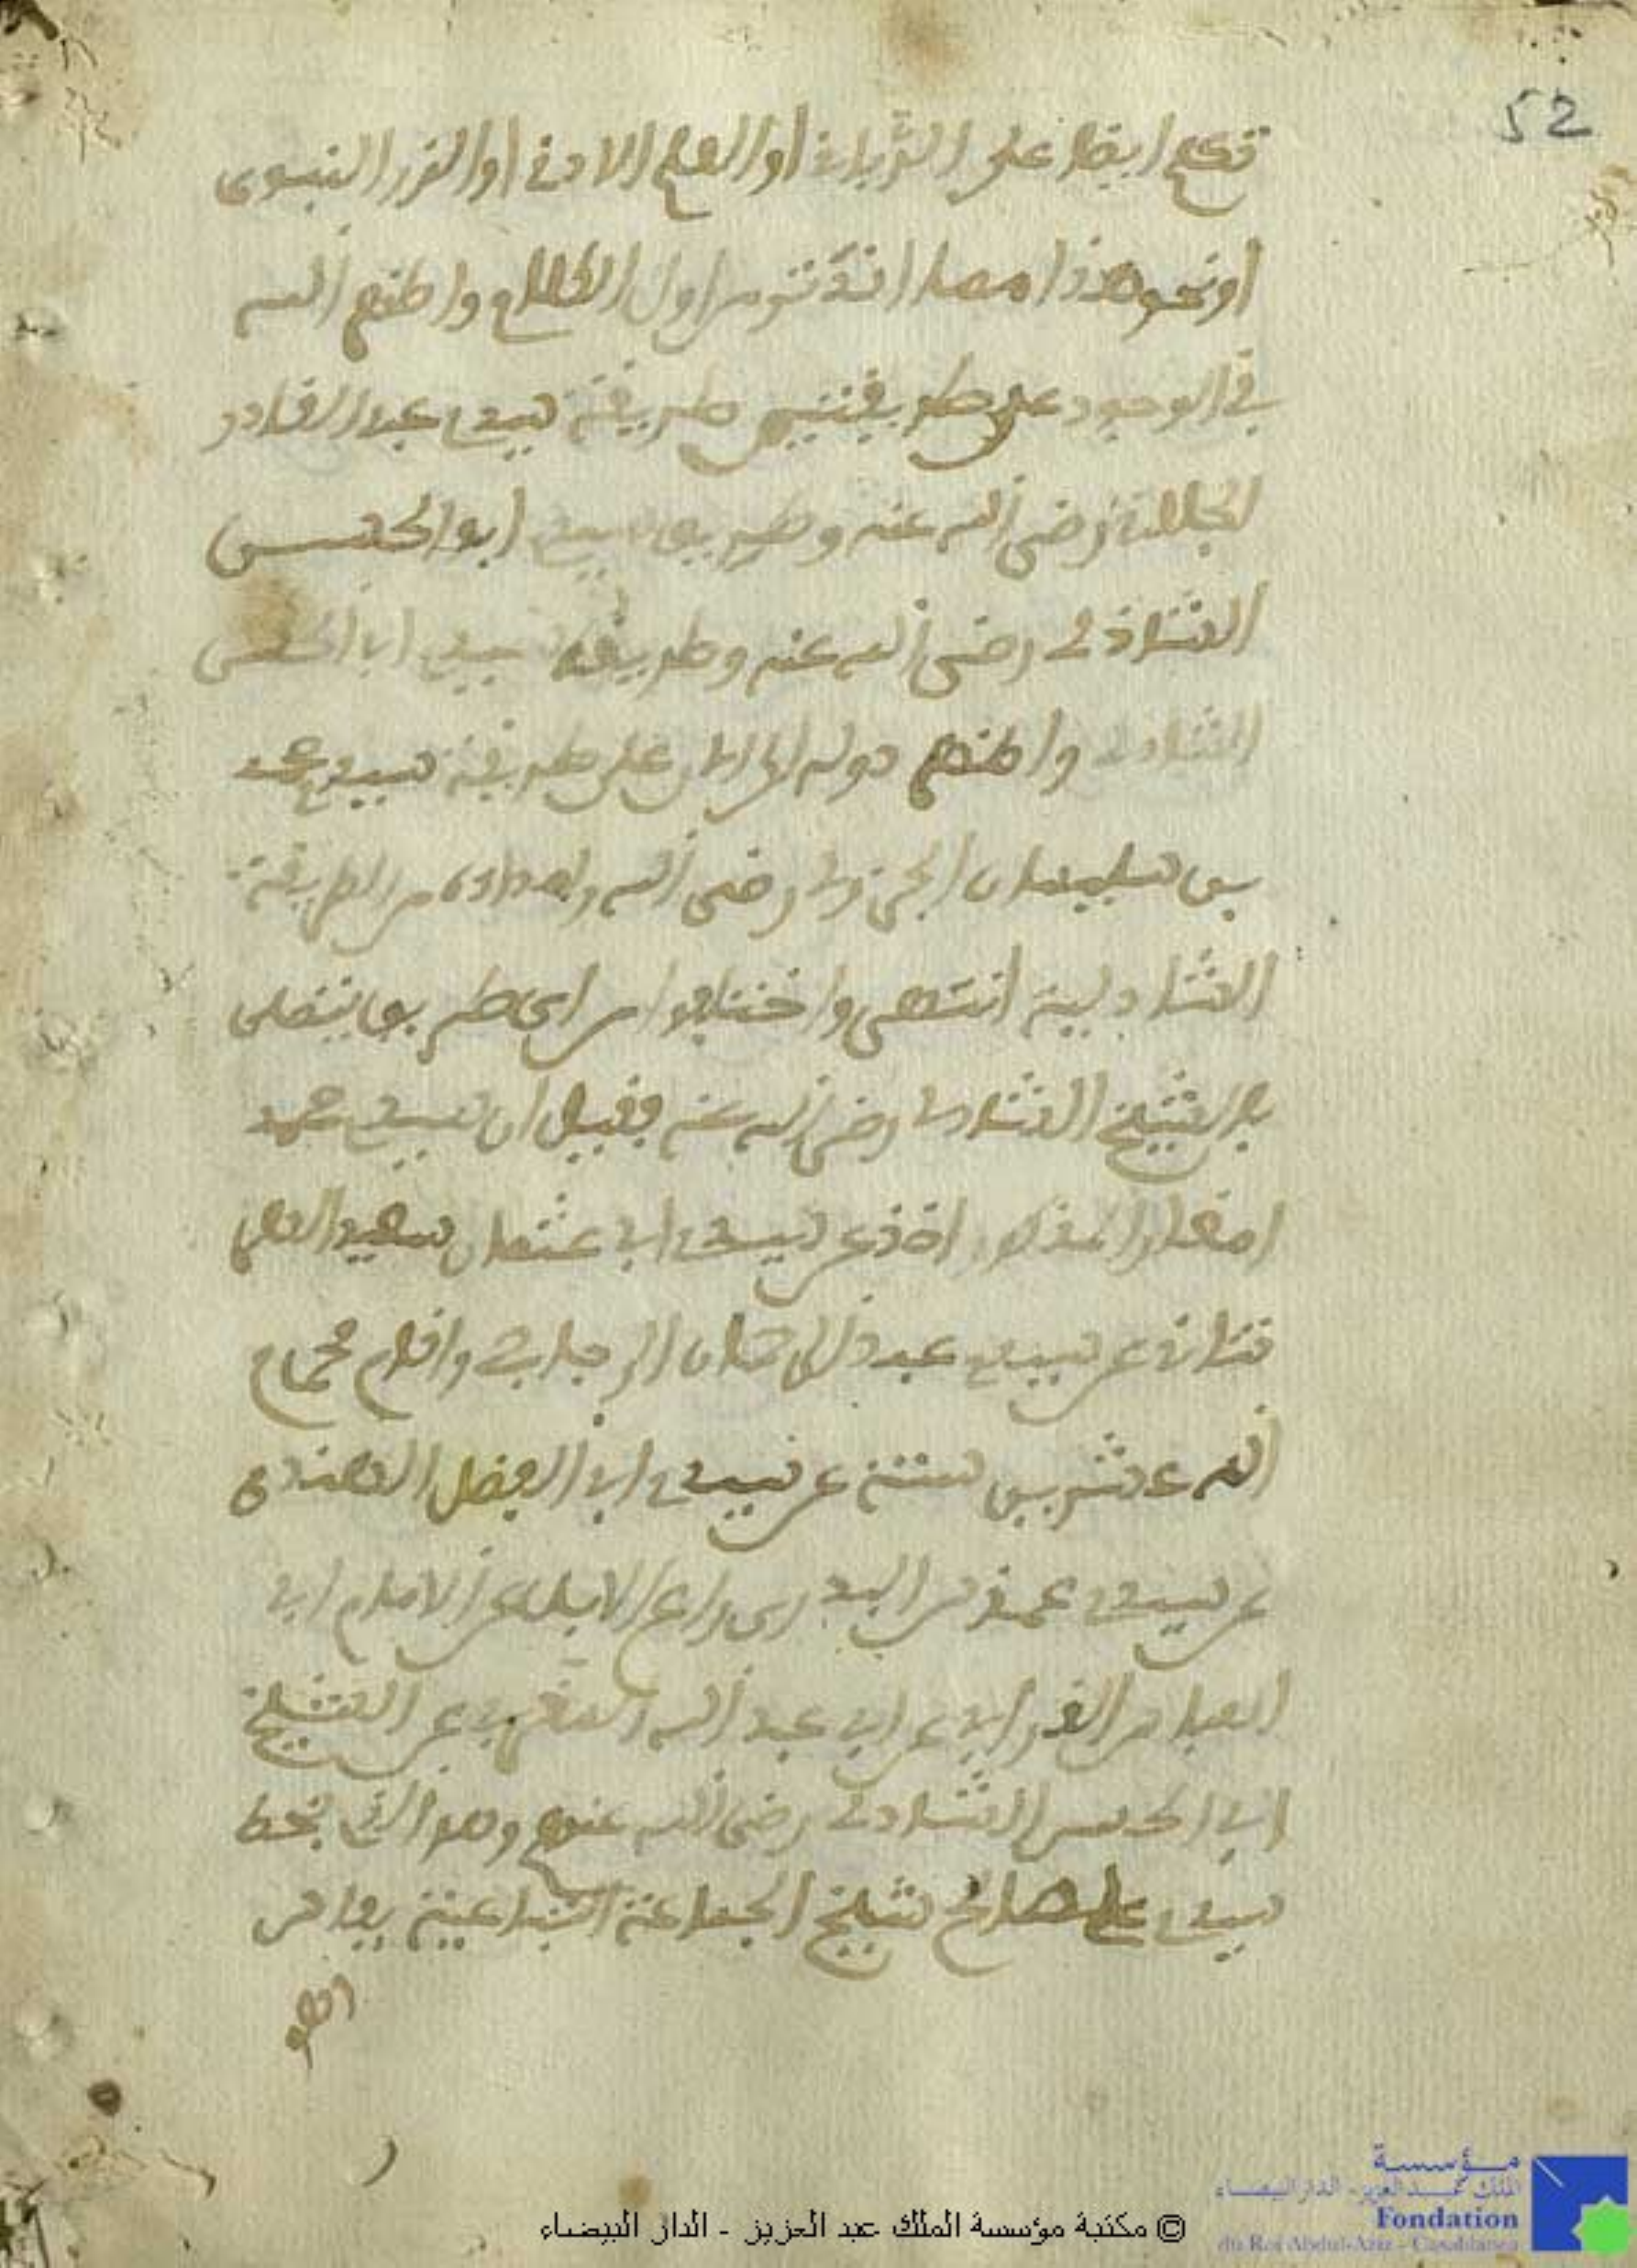 52
تكلم ايضا على الترياق او العلم الادنى او الفرد النبوي
او نحو هذا مما انقدتتم اول الكلام واطنهم الله
في الوجود على طريقتين طريقة سيدي عبد القادر
الجيلاني رضي الله عنه وطريق سيدي ابو الحسن
الشاذلي رضي الله عنه وطريقة سيدي ابا الحسن
الشاذلي واطنهم على طريقة سيدي محمد
بن سليمان الجزولي رضي الله من الطريقة
الشاذلية انتهى واختلفوا من اي طريق يتصل
بالشيخ الشاذلي رضي الله عنه فقيل ان سيدي محمد
امغار المذكور اخذ عن سيدي ابي عثمان سعيد الهر
تناني عن سيدي عبد الرحمان الرجراجي واقام
الله عشرين سنة عن سيدي ابي الفضل الهندي
عن سيدي عنوس البدوي راعي الابل عن الامام ابي
العباس القرافي عن ابي عبد الله المغربي عن الشيخ
ابي الحسن الشاذلي رضي الله عنهم وهو الذي بخط
سيدي علي صالح شيخ الجماعة التباعية بفاس
© مكتبة مؤسسة الملك عبد العزيز - الدار البيضاء
مؤسسة
الملك عبد العزيز - الدار البيضاء
Fondation
du Roi Abdul-Aziz - Casablanca